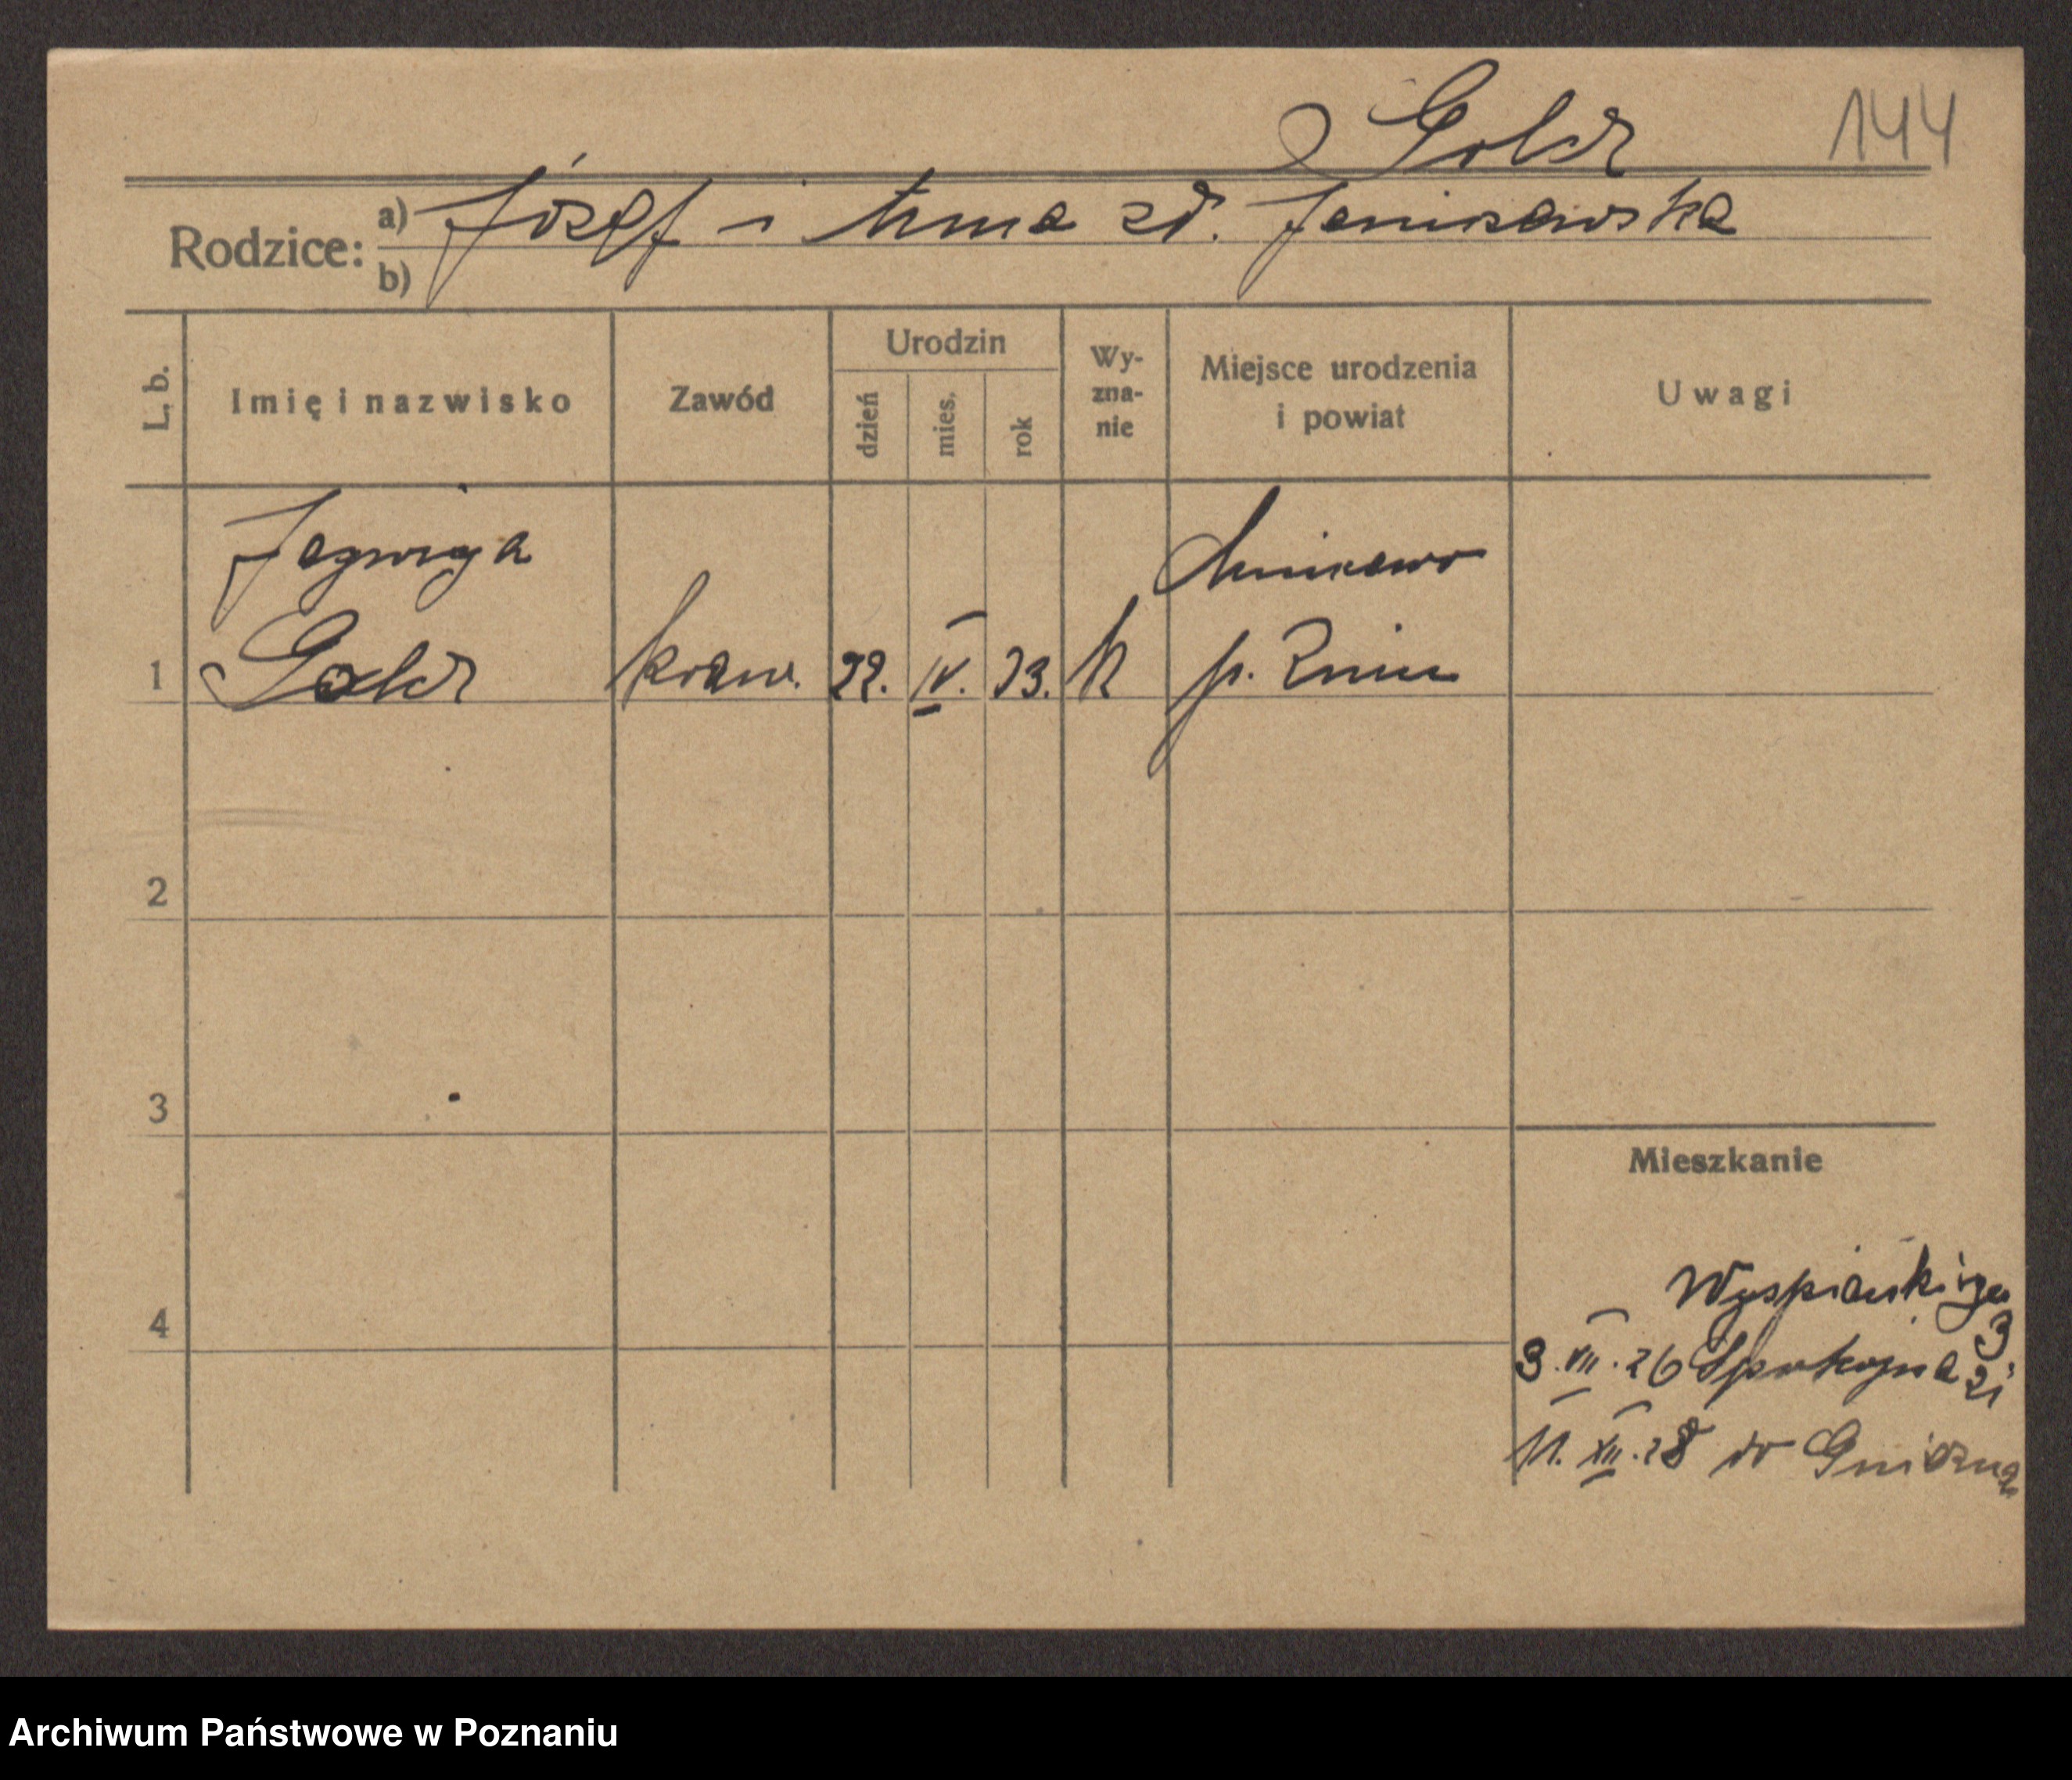 144
Rodzice: a) Józef i Anna zd. Janiszewska
b)
L. b.
Imię i nazwisko
Zawód
Urodzin
dzień
mies.
rok
Wy-
zna-
nie
Miejsce urodzenia
i powiat
Uwagi
Jadwiga
1 kraw. 22. IV. 73. K p. Żnin
2
3
Mieszkanie
4
Wyspiańskiego
3
3.VII.26 Spokojna 21
11.XII.28 do Gniezna
Archiwum Państwowe w Poznaniu